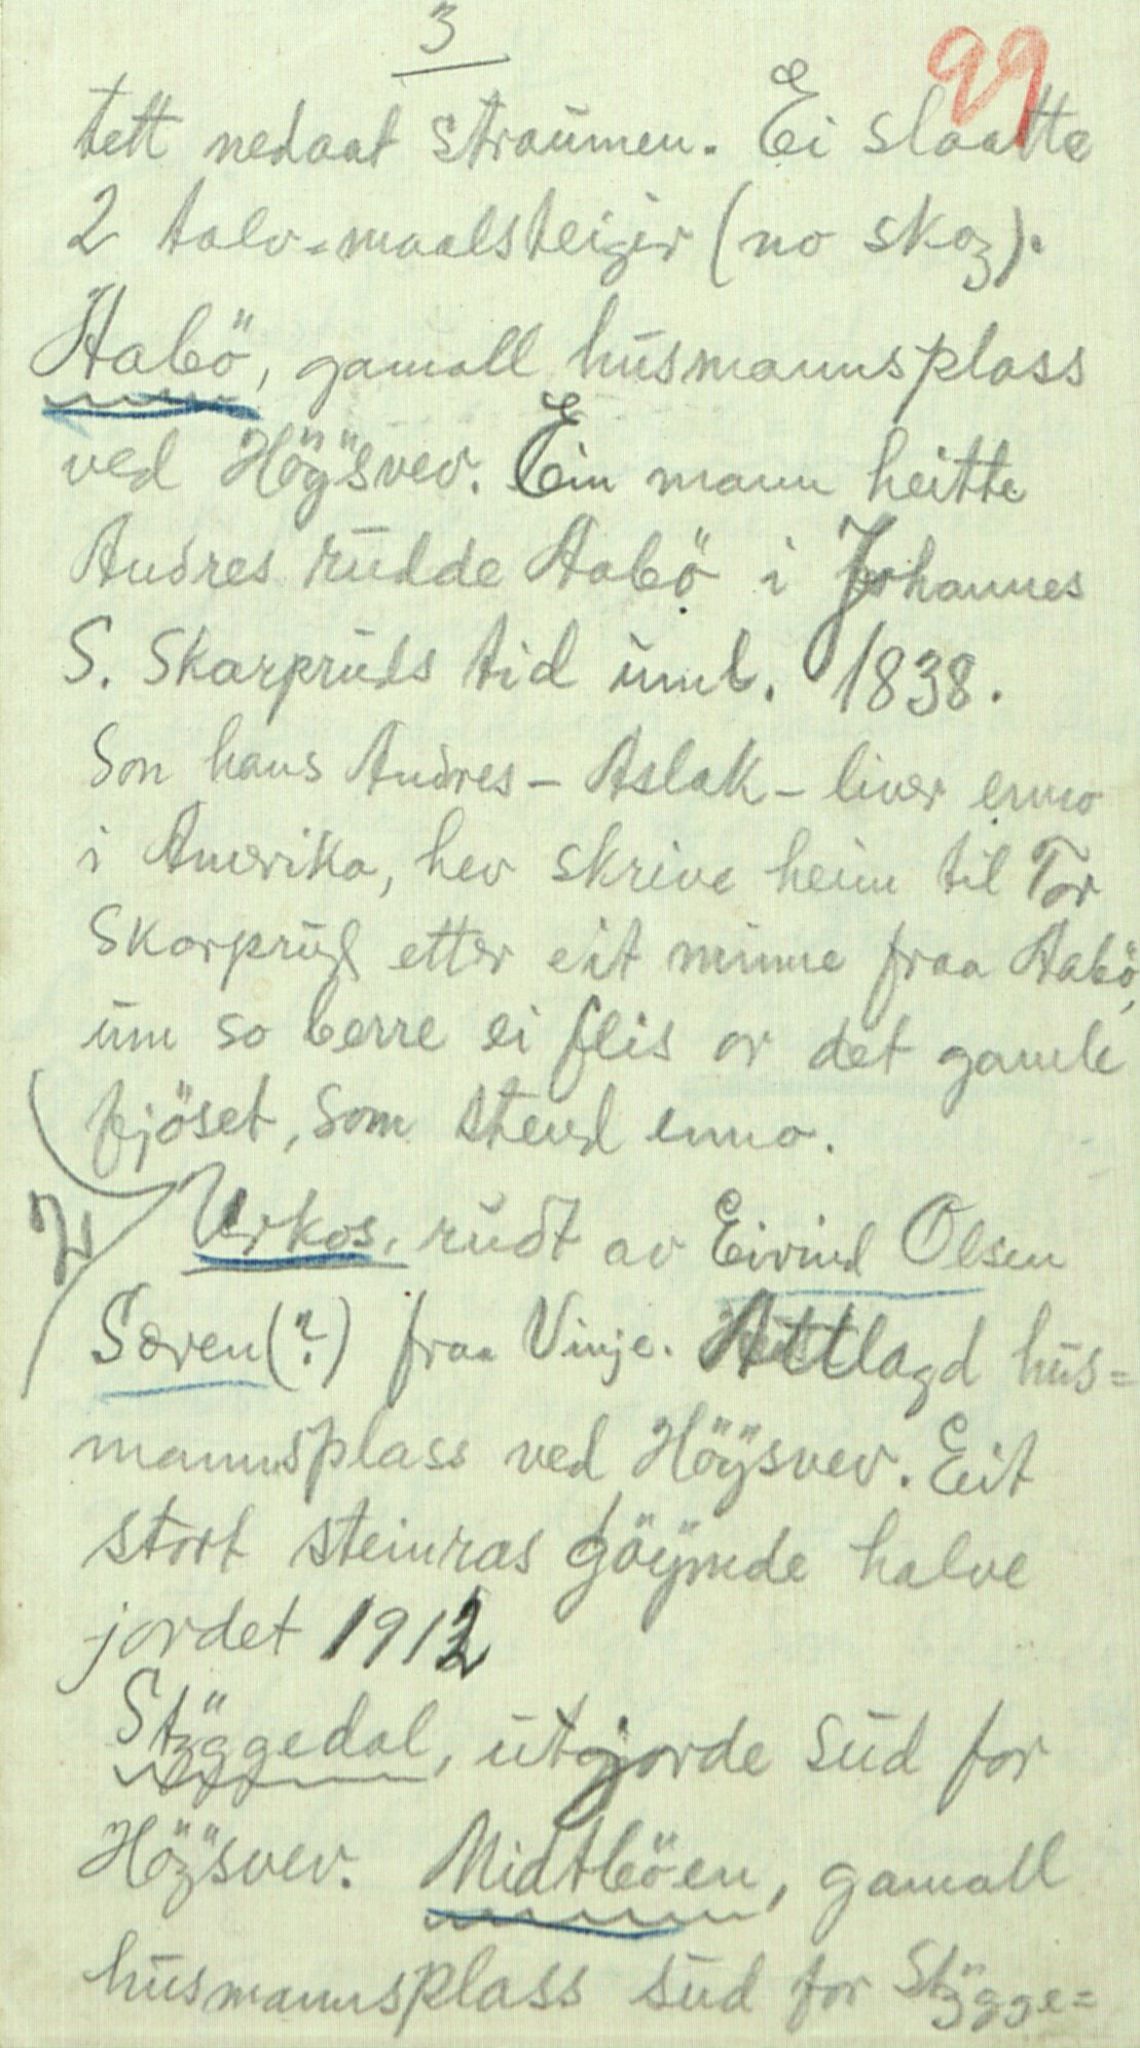 3
99
tett nedaat straumen. Ei slaatte
2 talv-maalsteigir (no skog).
Aabö, gamall husmannsplass
ved Höÿsvev. Ein mann heitte
Andres rudde Aabö i Johannes
S. Skarpruds tid uml. 1838.
Son hans Andres - Aslak - liver enno
i Amerika, hev skrive heim til Tor
Skarprud etter eit minne fraa Aabö,
um so berre ei flis or det gamle
fjöset, som stend enno.
Urkos, rudt av Eivind Olsen
Særen(?) fraa Vinje. Attlagd hus=
mannsplass ved Höÿsvev. Eit
stort steinras göÿmde halve
jordet 1912
Stÿggedal, utgjorde sud for
Höÿsvev. Midtböen, gamall
husmannsplass sud for Stÿgge=